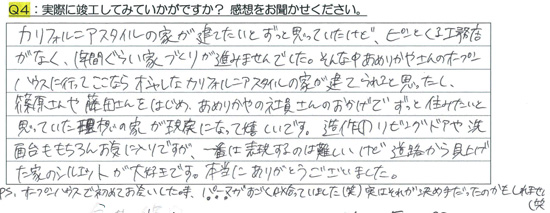 Q4：実際に竣工してみていかがですか？ 感想をお聞かせください。
カリフォルニアスタイルの家が建てたいとずっと思っていたけど、ピンとくる工務店
がなく、1年間ぐらい家づくりが進みませんでした。そんな中あめりかやさんのオープン
ハウスに行ってここならオシャレなカリフォルニアスタイルの家が建てられると思ったし、
篠原さんや藤田さんをはじめ、あめりかやの社員さんのおかげでずっと住みたいと
思っていた理想の家が現実になって嬉しいです。造作のリビングドアや洗
面台ももちろんお気に入りですが、一番は表現するのは難しいけど道路から見上げ
た家のシルエットが大好きです。本当にありがとうございました。
PS, オープンハウスで初めてお会いした時、パーマがすごく似合っていました(笑)実はそれが決め手だったのかもしれません
(笑